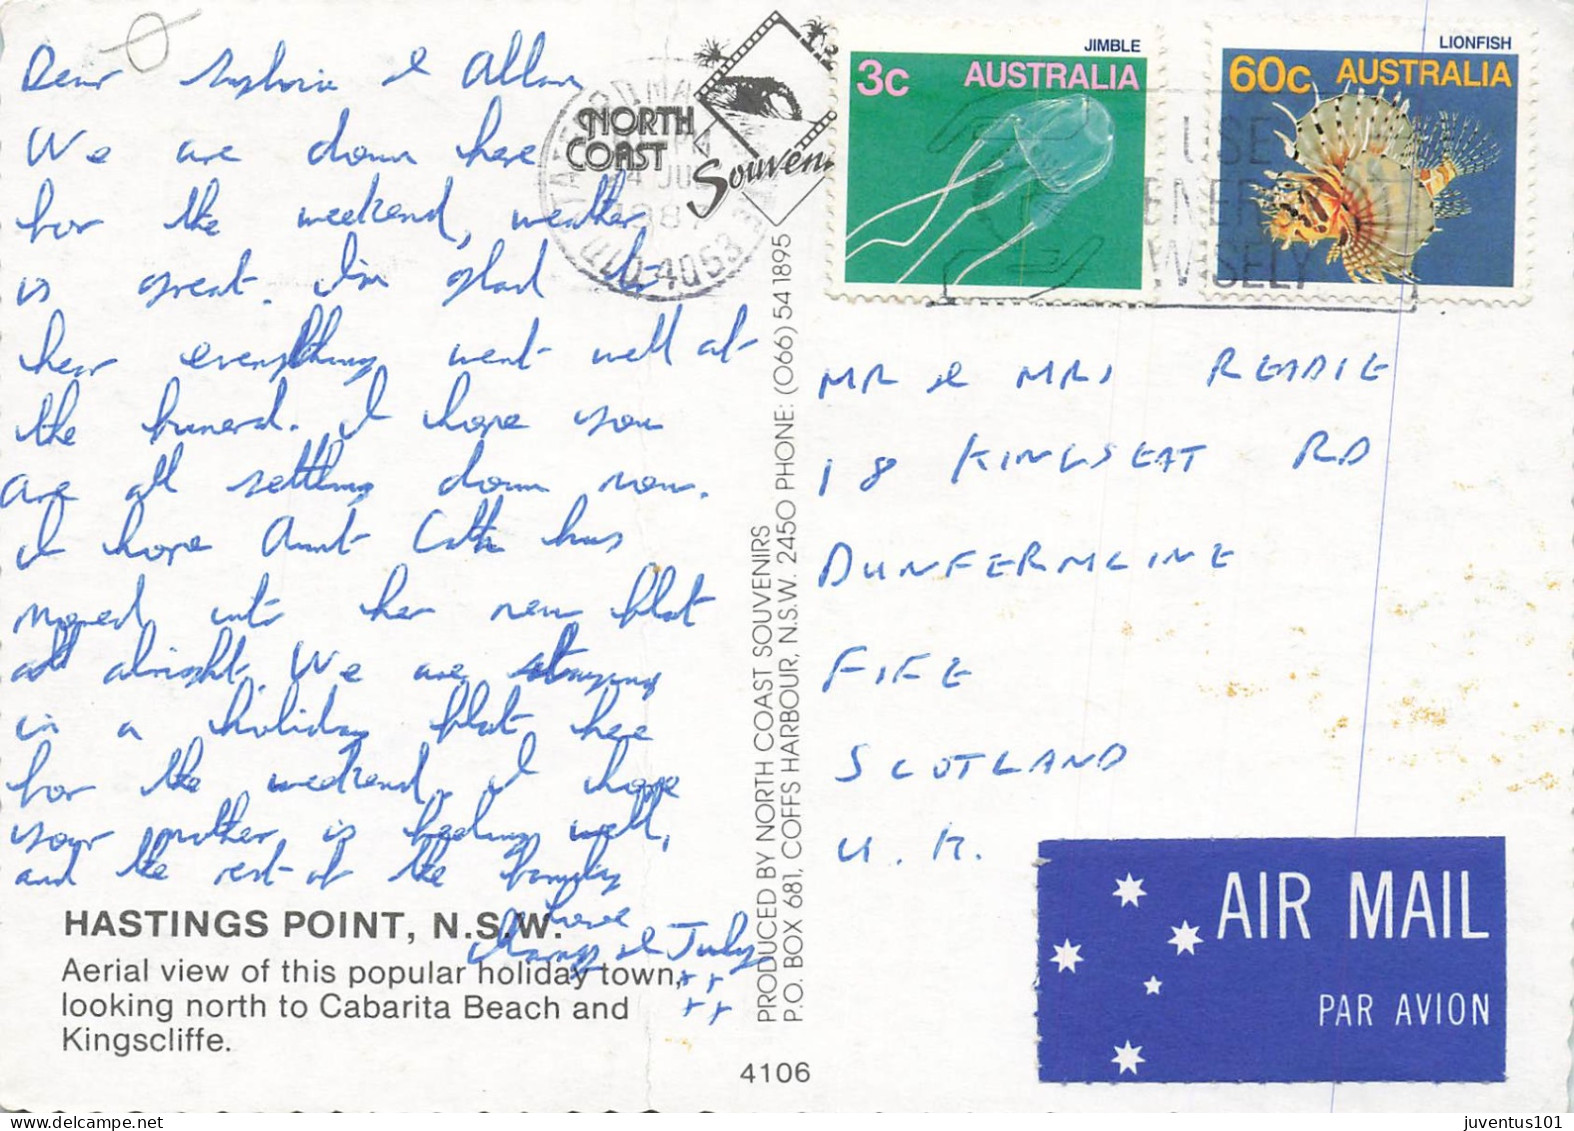 Dear & Allan
We are down here
for the weekend, weather
is great. I'm glad to
hear everything went well at
the funeral. I hope you
are all settling down now.
I hope Aunt Cath has
moved into her new flat
alright. We are staying
in a holiday flat here
for the weekend. I hope
your mother is feeling well,
and the rest of the family
love
& Judy
++
++
HASTINGS POINT, N.S.W.
Aerial view of this popular holiday town,
looking north to Cabarita Beach and
Kingscliffe.
4106
PRODUCED BY NORTH COAST SOUVENIRS
P.O. BOX 681, COFFS HARBOUR, N.S.W. 2450 PHONE: (066) 541895
NORTH
COAST
Souven
QLD 4053
JIMBLE
3c AUSTRALIA
LIONFISH
60c AUSTRALIA
USE
ENERGY
WISELY
MR & MRS READIE
18 KINGSEAT RD
DUNFERMLINE
FIFE
SCOTLAND
U.K.
AIR MAIL
PAR AVION
juventus101